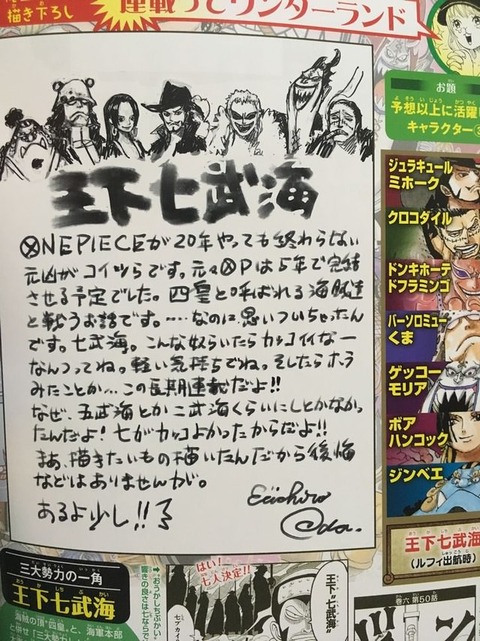 描き下ろし
連載ってワンダーランド
王下七武海
ONE PIECEが20年やっても終わらない
元凶がコイツらです。元々OPは5年で完結
させる予定でした。四皇と呼ばれる海賊達
と戦うお話です。……なのに思いついちゃったん
です。七武海。こんな奴らいたらカッコイイなー
なんつってね。軽い気持ちでね。そしたらホラ
みたことか…この長期連載だよ!!
なぜ、五武海とか二武海くらいにしとかなかっ
たんだよ!七がカッコよかったからだよ!!
まあ、描きたいもの描いたんだから後悔
などはありませんが。
あるよ少し!!
Eiichiro
Oda.
お題
予想以上に活躍!
キャラクター
ジュラキュール
ミホーク
クロコダイル
ドンキホーテ
ドフラミンゴ
バーソロミュー
くま
ゲッコー
モリア
ボア
ハンコック
ジンベエ
王下七武海
(ルフィ出航時)
三大勢力の一角
王下七武海
海賊の頂“四皇”と、海軍本部
と併せ「三大勢力
響きの良さは七ならで
はい!
七人決定!!
王下“七武海”
巻六 第50話